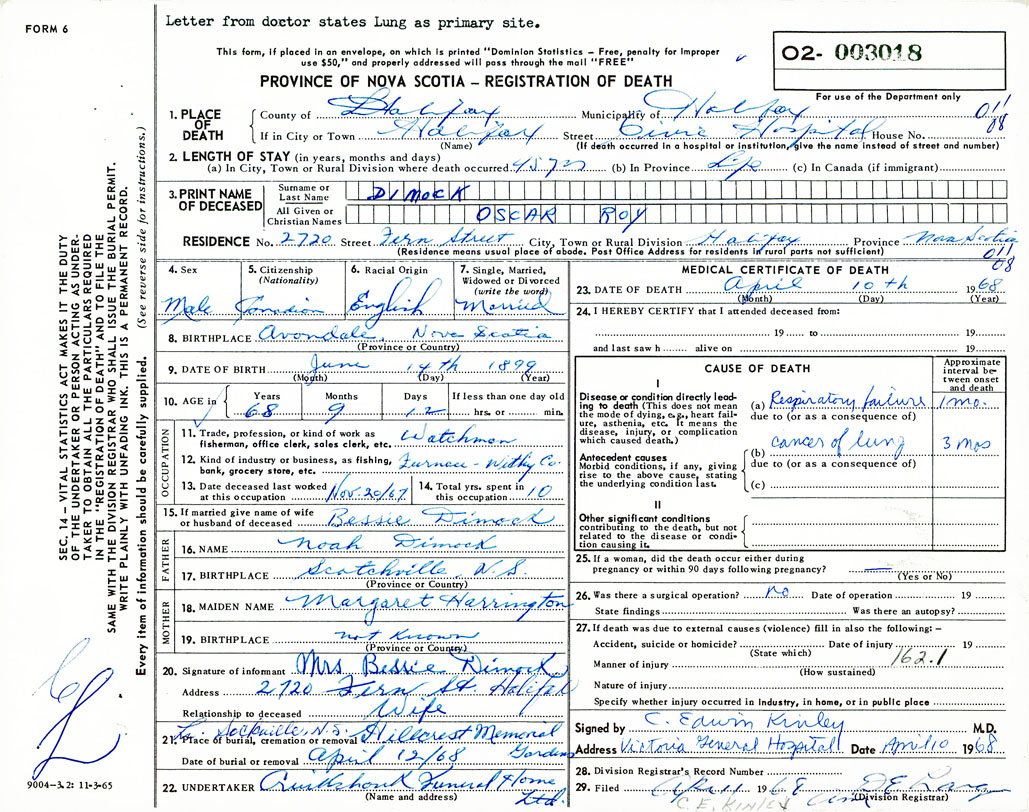 Letter from doctor states Lung as primary site.
FORM 6
This form, if placed in an envelope, on which is printed "Dominion Statistics – Free, penalty for improper
use $50," and properly addressed will pass through the mail "FREE"
O2- 003018
PROVINCE OF NOVA SCOTIA – REGISTRATION OF DEATH
For use of the Department only
1. PLACE OF DEATH
County of Halifax Municipality of Halifax
If in City or Town Halifax Street Civic Hospital House No.
(Name) (If death occurred in a hospital or institution, give the name instead of street and number)
2. LENGTH OF STAY (in years, months and days)
(a) In City, Town or Rural Division where death occurred 45 yrs (b) In Province Life (c) In Canada (if immigrant)
3. PRINT NAME OF DECEASED
Surname or Last Name DIMOCK
All Given or Christian Names OSCAR ROY
RESIDENCE No. 2720 Street Fern Street City, Town or Rural Division Halifax Province Nova Scotia
(Residence means usual place of abode. Post Office Address for residents in rural parts not sufficient)
4. Sex
Male
5. Citizenship
(Nationality)
Canadian
6. Racial Origin
English
7. Single, Married,
Widowed or Divorced
(write the word)
Married
8. BIRTHPLACE Avondale, Nova Scotia
(Province or Country)
9. DATE OF BIRTH June 14th 1899
(Month) (Day) (Year)
10. AGE in
Years Months Days If less than one day old
68 9 12 hrs. or min.
OCCUPATION
11. Trade, profession, or kind of work as
fisherman, office clerk, sales clerk, etc. Watchman
12. Kind of industry or business, as fishing,
bank, grocery store, etc. Furness-Withy Co.
13. Date deceased last worked
at this occupation Nov. 20/67
14. Total yrs. spent in
this occupation 10
15. If married give name of wife
or husband of deceased Bessie Dimock
FATHER
16. NAME Noah Dimock
17. BIRTHPLACE Scotchville, N.S.
(Province or Country)
MOTHER
18. MAIDEN NAME Margaret Harrington
19. BIRTHPLACE not known
(Province or Country)
20. Signature of informant Mrs. Bessie Dimock
Address 2720 Fern St. Halifax
Relationship to deceased Wife
Sackville, N.S.
21. Place of burial, cremation or removal Hillcrest Memorial Gardens
Date of burial or removal April 12/68
22. UNDERTAKER Cruikshank Funeral Home Ltd.
(Name and address)
MEDICAL CERTIFICATE OF DEATH
23. DATE OF DEATH April 10th 1968
(Month) (Day) (Year)
24. I HEREBY CERTIFY that I attended deceased from:
19 to 19
and last saw h alive on 19
CAUSE OF DEATH
Approximate
interval between
onset
and death
I
Disease or condition directly leading
to death (This does not
mean the mode of dying, e.g., heart failure,
asthenia, etc. It means the
disease, injury, or complication
which caused death.)
(a) Respiratory failure 1 mo.
due to (or as a consequence of)
Antecedent causes
Morbid conditions, if any, giving
rise to the above cause, stating
the underlying condition last.
(b) cancer of lung 3 mos
due to (or as a consequence of)
(c)
II
Other significant conditions
contributing to the death, but not
related to the disease or condition
causing it.
25. If a woman, did the death occur either during
pregnancy or within 90 days following pregnancy? —
(Yes or No)
26. Was there a surgical operation? no Date of operation 19
State findings Was there an autopsy?
27. If death was due to external causes (violence) fill in also the following: –
Accident, suicide or homicide? Date of injury 19
(State which)
162.1
Manner of injury
(How sustained)
Nature of injury
Specify whether injury occurred in industry, in home, or in public place
Signed by C. Edwin Kinley M.D.
Address Victoria General Hospital Date April 10 1968
28. Division Registrar's Record Number
29. Filed
(Division Registrar)
C. E. KINLEY
SEC. 14 – VITAL STATISTICS ACT MAKES IT THE DUTY
OF THE UNDERTAKER OR PERSON ACTING AS UNDERTAKER
TO OBTAIN ALL THE PARTICULARS REQUIRED
IN THE "REGISTRATION OF DEATH" AND TO FILE THE
SAME WITH THE DIVISION REGISTRAR WHO SHALL ISSUE THE BURIAL PERMIT.
WRITE PLAINLY WITH UNFADING INK. THIS IS A PERMANENT RECORD.
Every item of information should be carefully supplied. (See reverse side for instructions.)
9004-3.2: 11-3-65